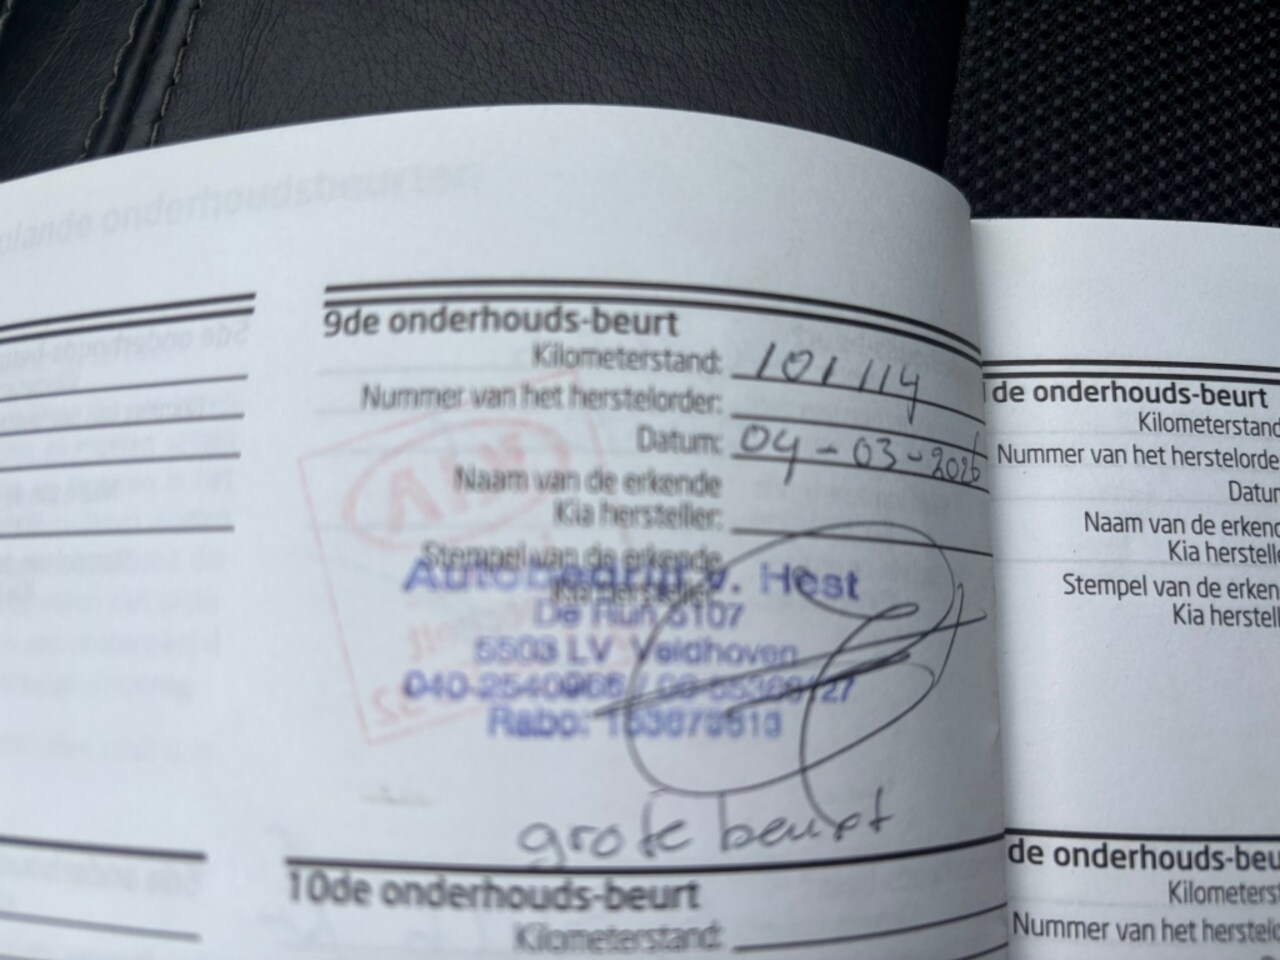 onderhoudsbeurten
9de onderhouds-beurt
Kilometerstand: 101114
Nummer van het herstelorder:
Datum: 04-03-2026
Naam van de erkende
Kia hersteller:
Stempel van de erkende
Kia hersteller:
Autobedrijf v. Hest
De Run
5503 LV Veldhoven
Rabo:
grote beurt
10de onderhouds-beurt
Kilometerstand:
de onderhouds-beurt
Kilometerstand
Nummer van het herstelorde
Datum
Naam van de erkend
Kia herstelle
Stempel van de erken
Kia herstell
de onderhouds-beu
Kilometerst
Nummer van het herstelo